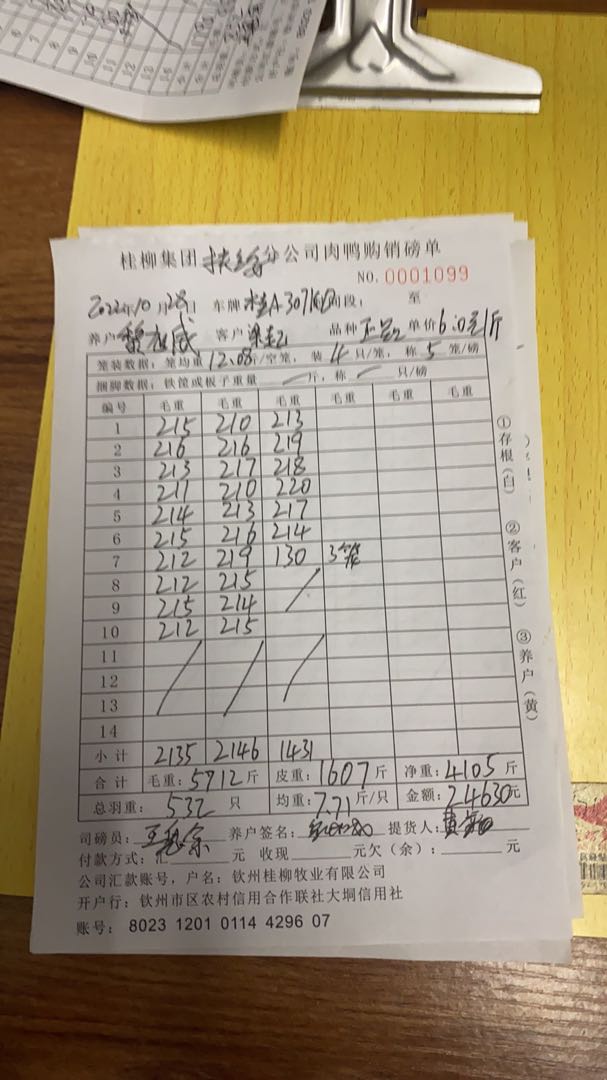 桂柳集团扶绥分公司肉鸭购销磅单
NO. 0001099
2022年10月28日 车牌 桂A·307 时段: 至
养户 客户 品种 单价6.0元/斤
笼装数据: 笼均重12.08斤/空笼, 装4只/笼, 称5笼/磅
捆脚数据: 铁筐或板子重量 斤, 称 只/磅
编号 毛重 毛重 毛重 毛重 毛重 毛重
1 215 210 213
2 216 216 219
3 213 217 218
4 211 210 220
5 214 213 217
6 215 216 214
7 212 219 130 3笼
8 212 215
9 215 214
10 212 215
11
12
13
14
小计 2135 2146 1431
合计 毛重: 5712斤 皮重: 1607斤 净重: 4105斤
总羽重: 532只 均重: 7.71斤/只 金额: 24630元
司磅员: 养户签名: 提货人:
付款方式: 汇 元 收现 元欠(余): 元
公司汇款账号, 户名: 钦州桂柳牧业有限公司
开户行: 钦州市区农村信用合作联社大垌信用社
账号: 8023 1201 0114 4296 07
①存根(白)
②客户(红)
③养户(黄)